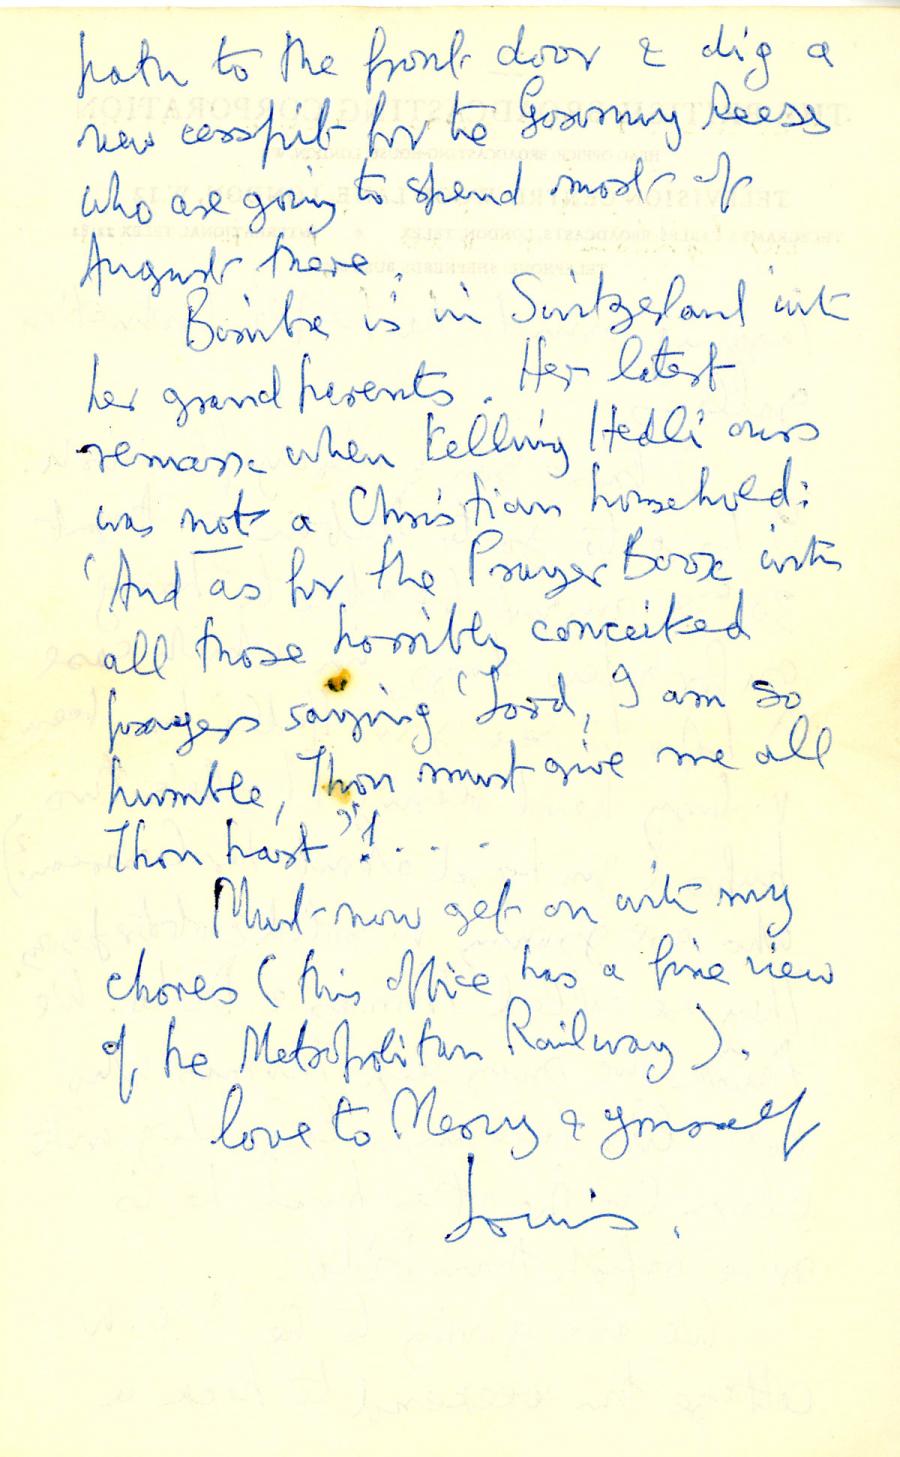 path to the front door & dig a
new cesspit for the Goronwy Reeses
who are going to spend most of
August there.
Bimba is in Switzerland with
her grandparents. Her latest
remark when telling Hedli ours
was not a Christian household:
'And as for the Prayer Book with
all those horribly conceited
prayers saying 'Lord, I am so
humble, Thou must give me all
Thou hast"! . . .
Must now get on with my
chores (this office has a fine view
of the Metropolitan Railway).
love to Mercy & yourself
Louis.